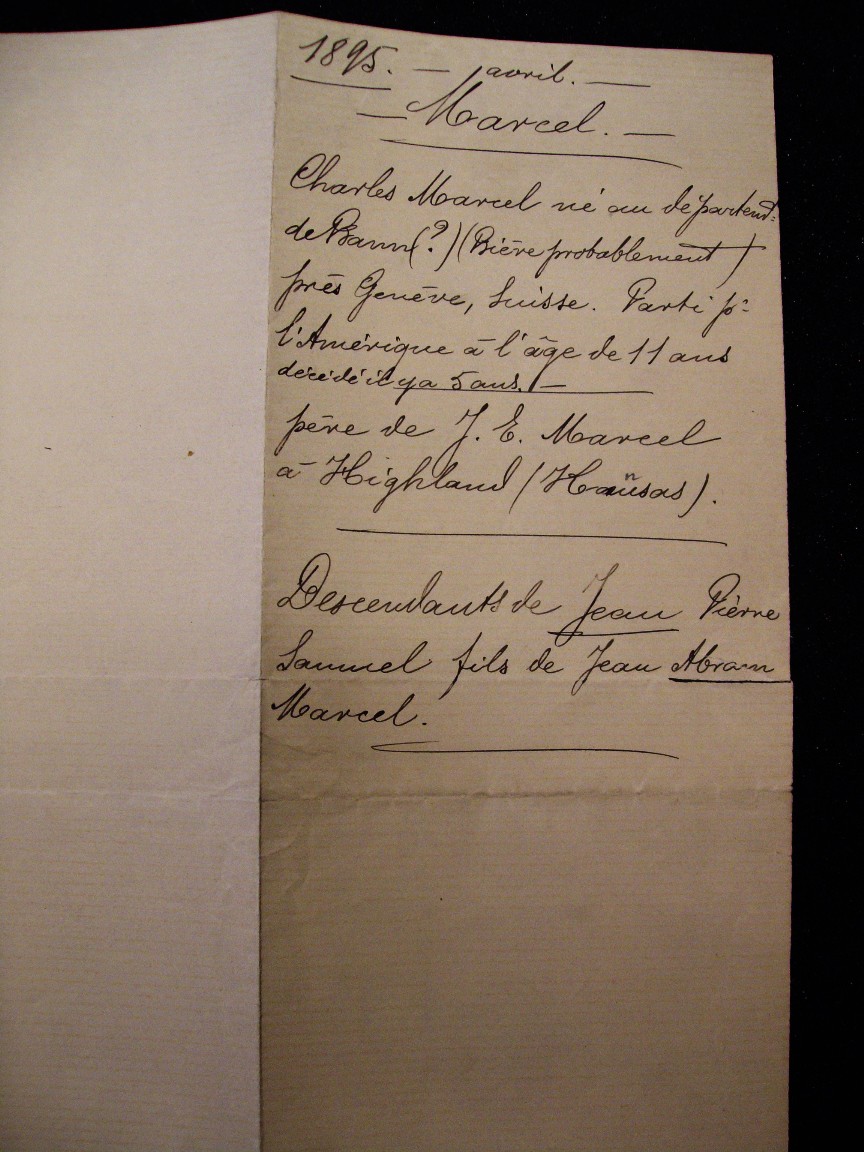 1895. — avril. —
— Marcel. —
Charles Marcel né au départemt:
de Bann (?) (Bière probablement)
près Genève, Suisse. Parti pr:
l'Amérique à l'âge de 11 ans
décédé il y a 5 ans. —
père de J. E. Marcel
à Highland (Kansas).
Descendants de Jean Pierre
Samuel fils de Jean Abram
Marcel.